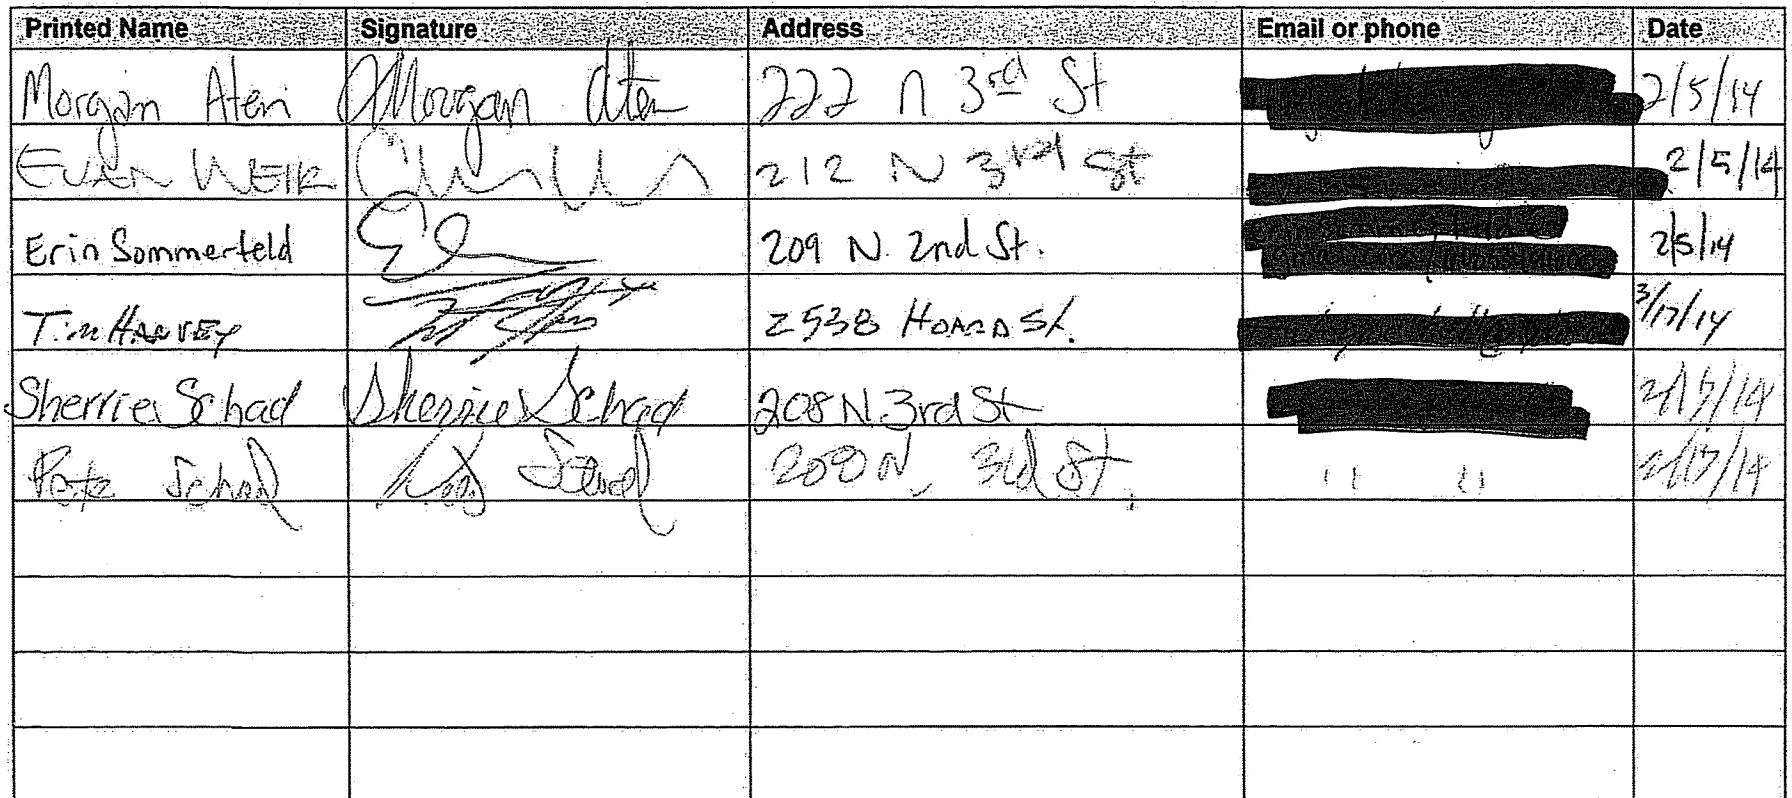 Printed Name Signature Address Email or phone Date
Morgan Aten Morgan Aten 222 N 3rd St 2/5/14
EVAN WEIR 212 N 3rd St 2/5/14
Erin Sommerfeld 209 N. 2nd St. 2/5/14
Tim HARVEY 2538 HOARD St. 3/17/14
Sherrie Schad Sherrie Schad 208 N. 3rd St
Pete Schad 208 N. 3rd St. " "